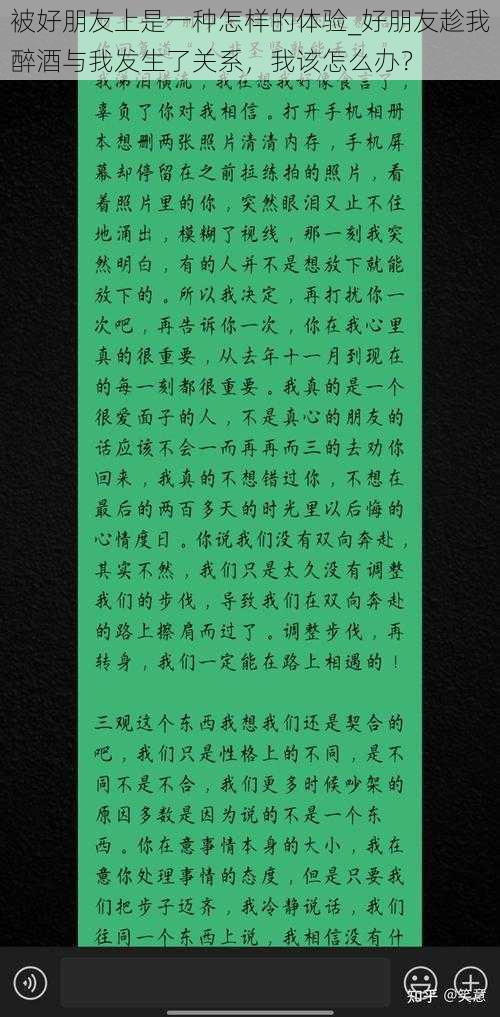 被好朋友上是一种怎样的体验_好朋友趁我
醉酒与我发生了关系，我该怎么办？
我涕泪横流，我在想我好像食言了，
辜负了你对我相信。打开手机相册
本想删两张照片清清内存，手机屏
幕却停留在之前拉练拍的照片，看
着照片里的你，突然眼泪又止不住
地涌出，模糊了视线，那一刻我突
然明白，有的人并不是想放下就能
放下的。所以我决定，再打扰你一
次吧，再告诉你一次，你在我心里
真的很重要，从去年十一月到现在
的每一刻都很重要。我真的是一个
很爱面子的人，不是真心的朋友的
话应该不会一而再再而三的去劝你
回来，我真的不想错过你，不想在
最后的两百多天的时光里以后悔的
心情度日。你说我们没有双向奔赴，
其实不然，我们只是太久没有调整
我们的步伐，导致我们在双向奔赴
的路上擦肩而过了。调整步伐，再
转身，我们一定能在路上相遇的！
三观这个东西我想我们还是契合的
吧，我们只是性格上的不同，是不
同不是不合，我们更多时候吵架的
原因多数是因为说的不是一个东
西。你在意事情本身的大小，我在
意你处理事情的态度，但是只要我
们把步子迈齐，我冷静说话，我们
往同一个东西上说，我相信没有什
知乎 @笑意